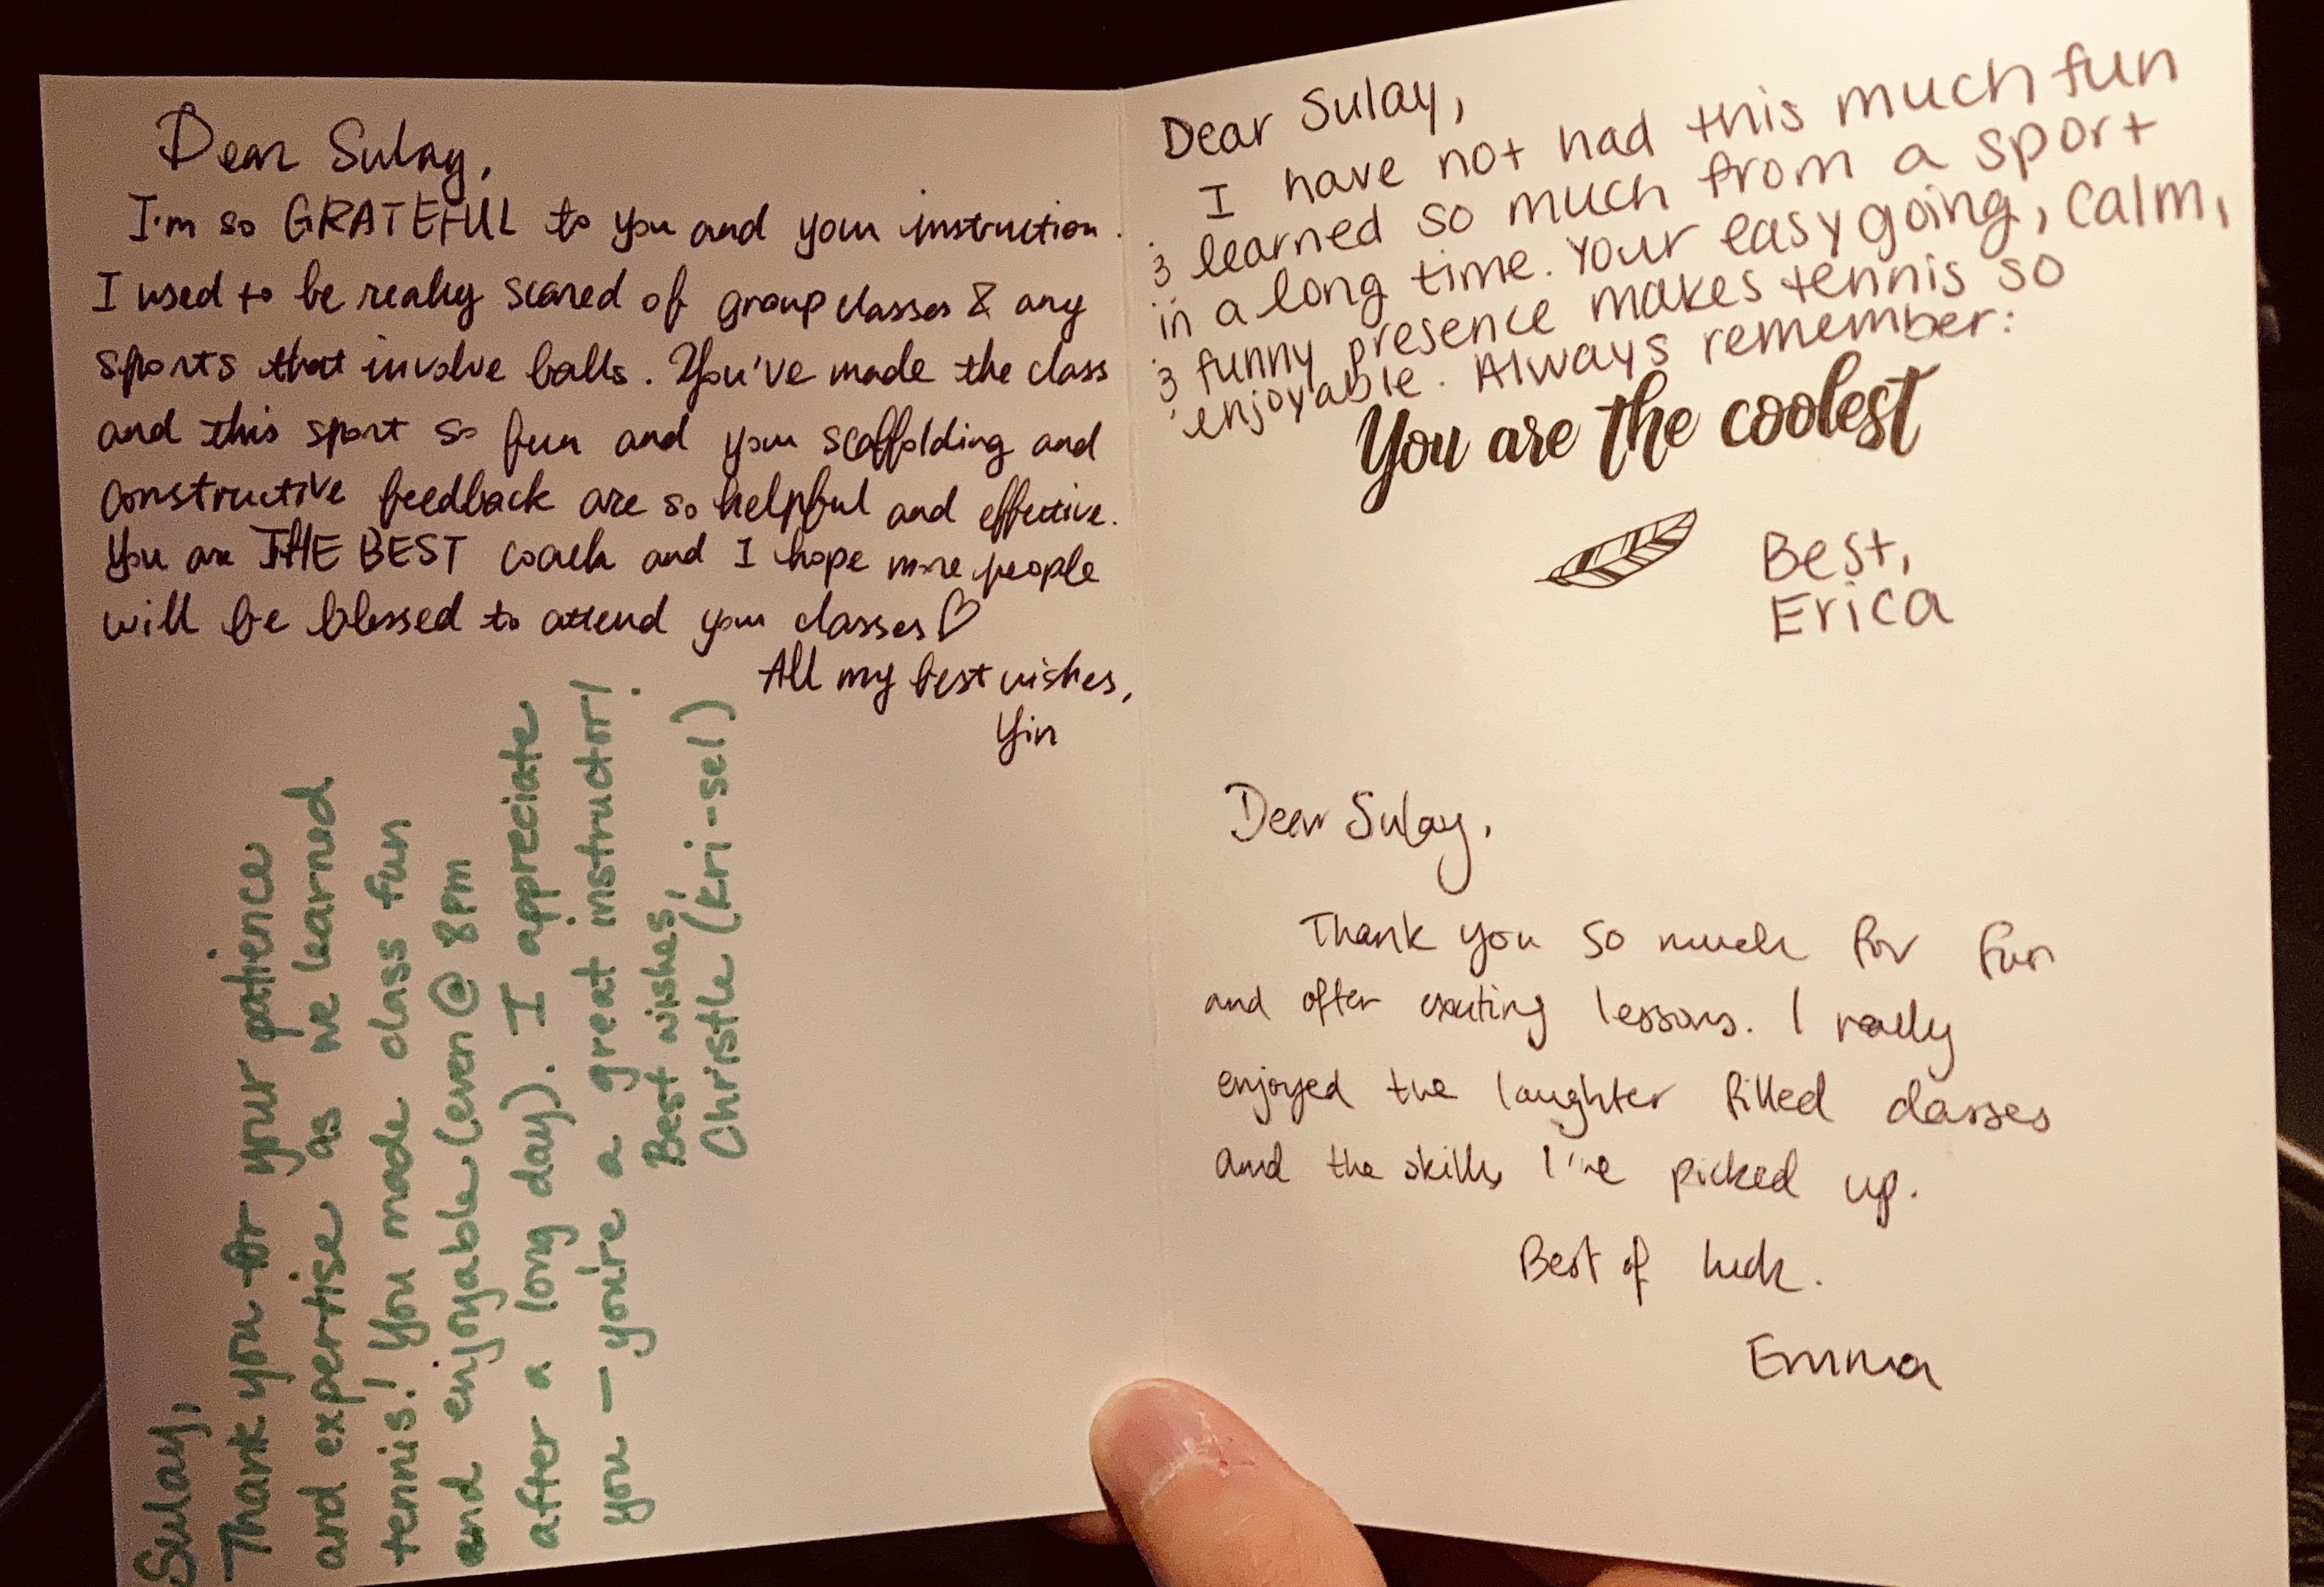 Dear Sulay,
I'm so GRATEFUL to you and your instruction.
I used to be really scared of group classes & any
sports that involve balls. You've made the class
and this sport so fun and your scaffolding and
constructive feedback are so helpful and effective.
You are THE BEST coach and I hope more people
will be blessed to attend your classes♡
All my best wishes,
Yin
Sulay,
Thank you for your patience
and expertise as we learned
tennis! You made class fun
and enjoyable (even @ 8pm
after a long day). I appreciate
you — you're a great instructor!
Best wishes,
Christle (kri-sel)
Dear Sulay,
I have not had this much fun
& learned so much from a sport
in a long time. Your easygoing, calm,
& funny presence makes tennis so
enjoyable. Always remember:
You are the coolest
Best,
Erica
Dear Sulay,
Thank you so much for fun
and often exciting lessons. I really
enjoyed the laughter filled classes
and the skills I've picked up.
Best of luck.
Emma